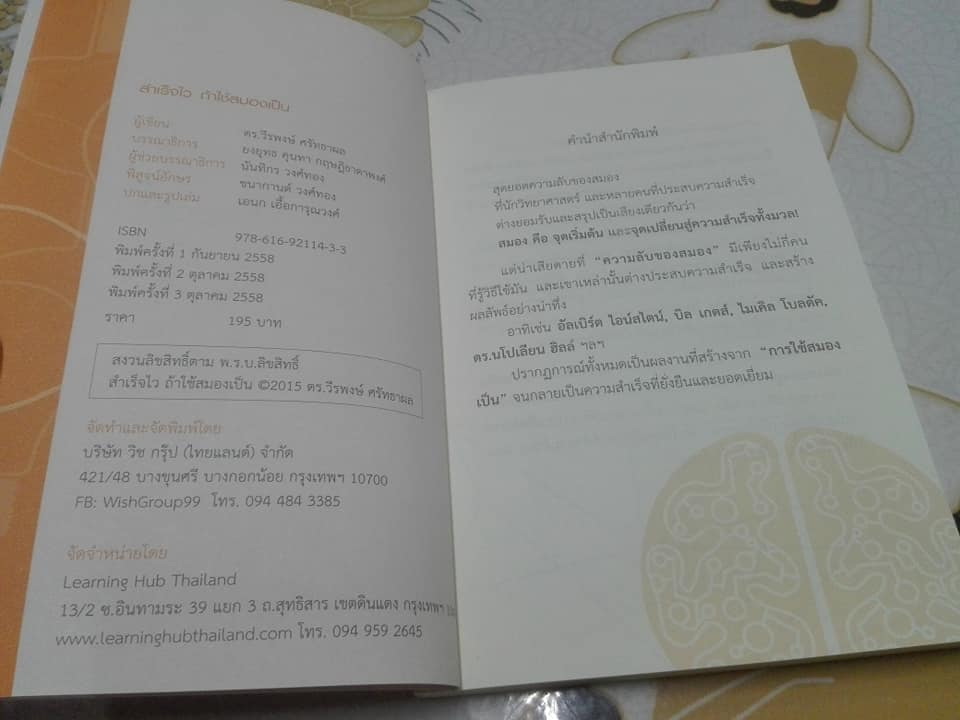 สำเร็จไว ถ้าใช้สมองเป็น
ผู้เขียน ดร.วีรพงษ์ ศรัทธาผล
บรรณาธิการ ยงยุทธ คุนทา กฤษฎิชาดาพงศ์
ผู้ช่วยบรรณาธิการ นันทิกร วงศ์ทอง
พิสูจน์อักษร ชนากานต์ วงศ์ทอง
ปกและรูปเล่ม เอนก เอื้อการุณวงศ์
ISBN 978-616-92114-3-3
พิมพ์ครั้งที่ 1 กันยายน 2558
พิมพ์ครั้งที่ 2 ตุลาคม 2558
พิมพ์ครั้งที่ 3 ตุลาคม 2558
ราคา 195 บาท
สงวนลิขสิทธิ์ตาม พ.ร.บ.ลิขสิทธิ์
สำเร็จไว ถ้าใช้สมองเป็น ©2015 ดร.วีรพงษ์ ศรัทธาผล
จัดทำและจัดพิมพ์โดย
บริษัท วิช กรุ๊ป (ไทยแลนด์) จำกัด
421/48 บางขุนศรี บางกอกน้อย กรุงเทพฯ 10700
FB: WishGroup99 โทร. 094 484 3385
จัดจำหน่ายโดย
Learning Hub Thailand
13/2 ซ.อินทามระ 39 แยก 3 ถ.สุทธิสาร เขตดินแดง กรุงเทพฯ
www.learninghubthailand.com โทร. 094 959 2645
คำนำสำนักพิมพ์
สุดยอดความลับของสมอง
ที่นักวิทยาศาสตร์ และหลายคนที่ประสบความสำเร็จ
ต่างยอมรับและสรุปเป็นเสียงเดียวกันว่า
สมอง คือ จุดเริ่มต้น และจุดเปลี่ยนสู่ความสำเร็จทั้งมวล!
แต่น่าเสียดายที่ “ความลับของสมอง” มีเพียงไม่กี่คน
ที่รู้วิธีใช้มัน และเขาเหล่านั้นต่างประสบความสำเร็จ และสร้าง
ผลลัพธ์อย่างน่าทึ่ง
อาทิเช่น อัลเบิร์ต ไอน์สไตน์, บิล เกตส์, ไมเคิล โบลดัค,
ดร.นโปเลียน ฮิลล์ ฯลฯ
ปรากฏการณ์ทั้งหมดเป็นผลงานที่สร้างจาก “การใช้สมอง
เป็น” จนกลายเป็นความสำเร็จที่ยั่งยืนและยอดเยี่ยม